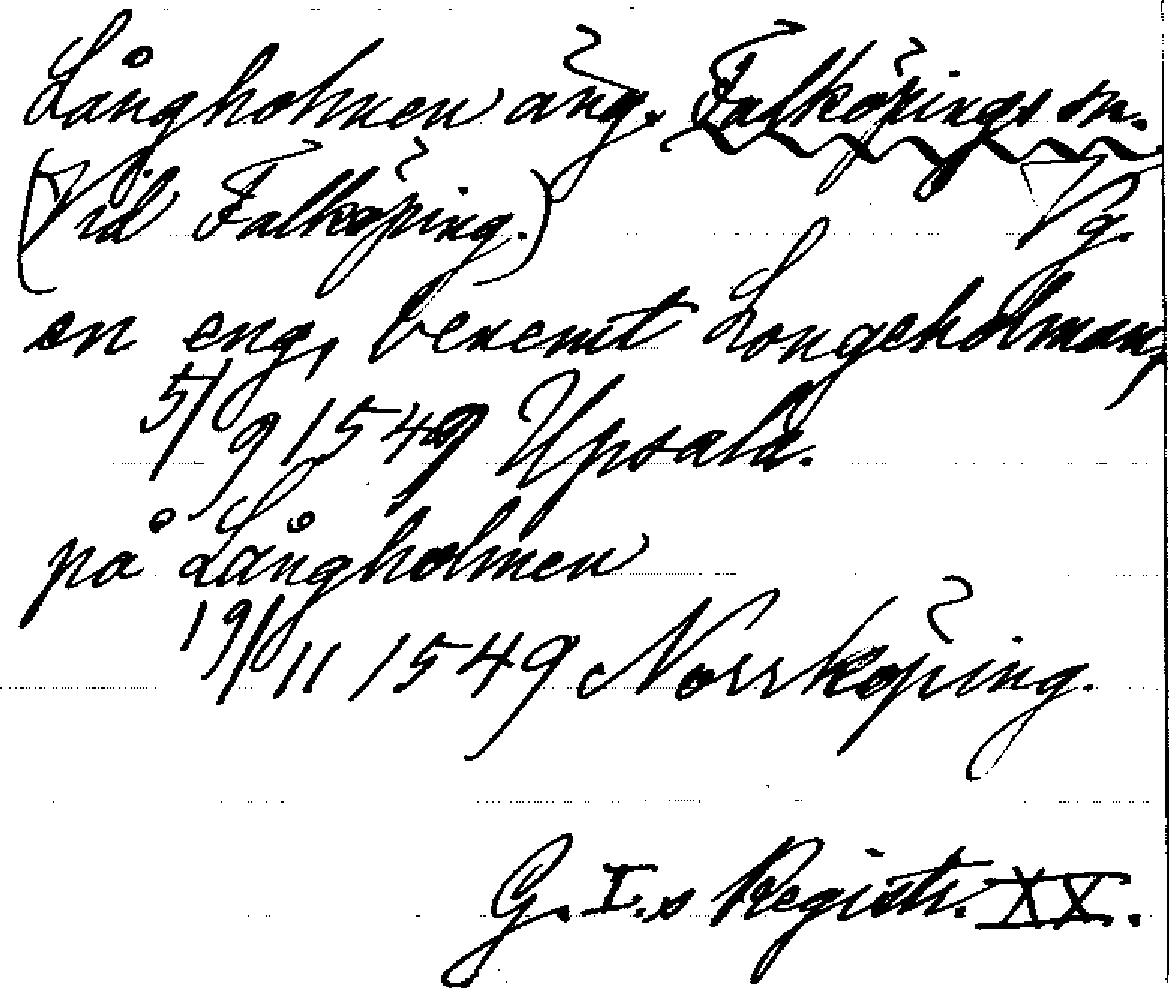 Långholmen äng. Falköpings sn.
(Vid Falköping.) Vg.
en eng, benemt Longeholman,
5/9 1549 Upsala.
på Långholmen
19/11 1549 Norrköping.
G. I.s Registr. XX.